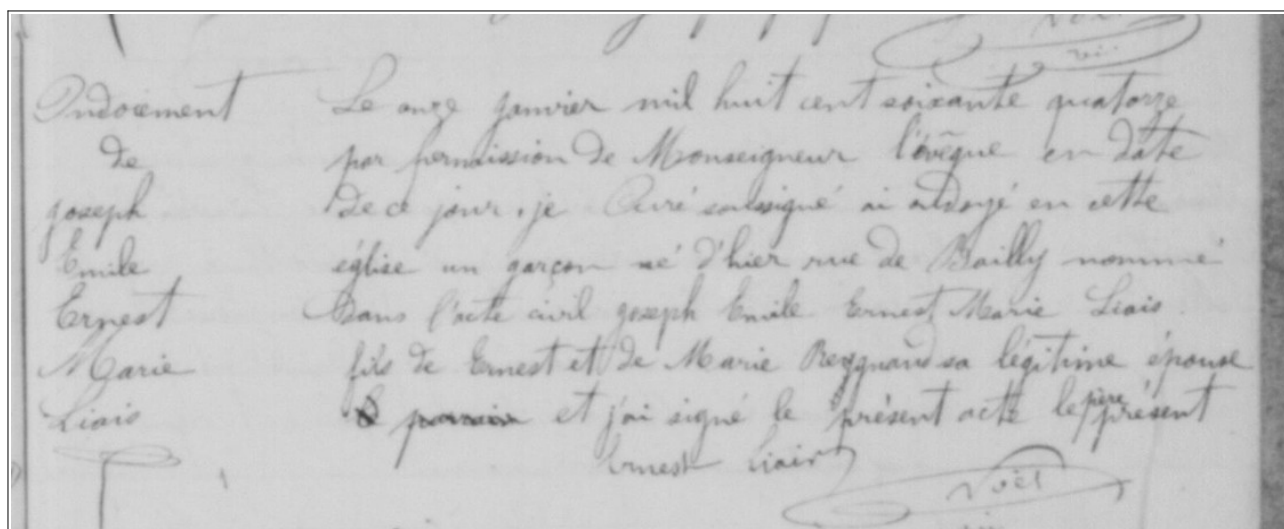 Noël
vic
Ondoiement Le onze janvier mil huit cent soixante quatorze
de par permission de Monseigneur l'évêque en date
Joseph de ce jour, je Curé soussigné ai ondoyé en cette
Emile église un garçon né d'hier rue de Bailly nommé
Ernest dans l'acte civil Joseph Emile Ernest Marie Liais
Marie fils de Ernest et de Marie Reygnaud sa légitime épouse
Liais et j'ai signé le présent acte le père présent
Ernest Liais
Noël